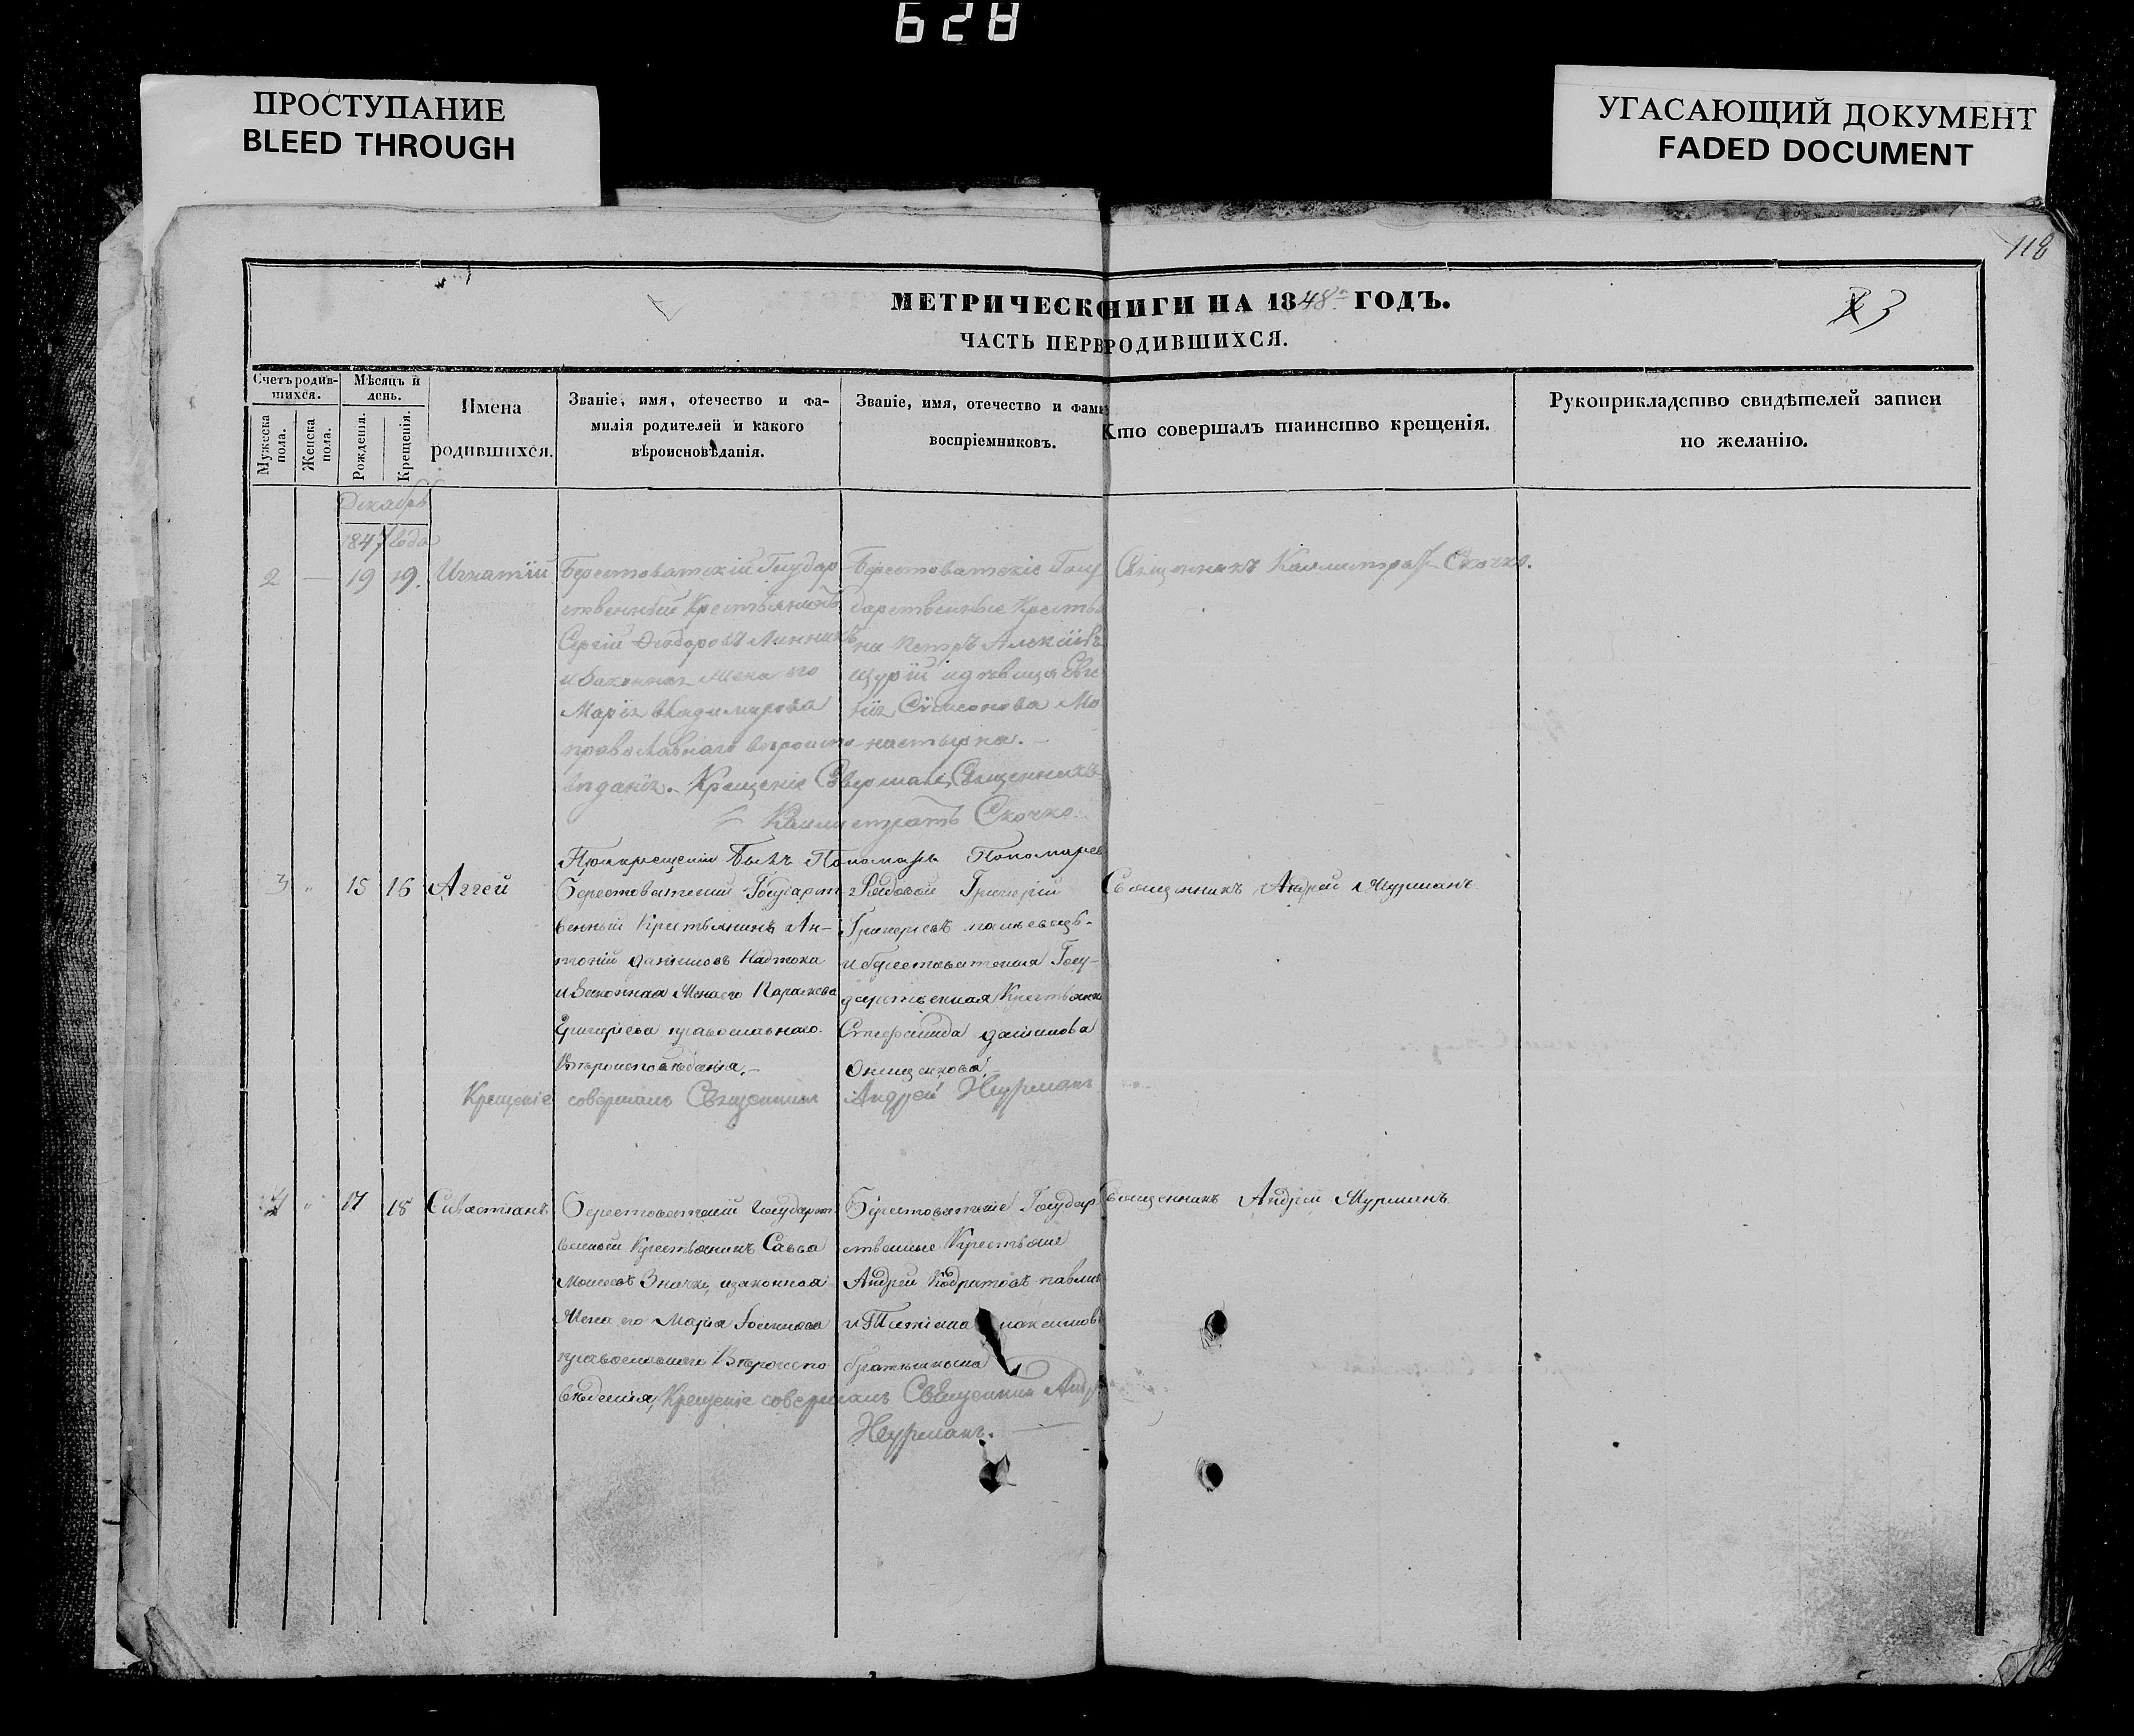 628
ПРОСТУПАНИЕ
BLEED THROUGH
УГАСАЮЩИЙ ДОКУМЕНТ
FADED DOCUMENT
118
МЕТРИЧЕСК НИГИ НА 1848 ГОДЪ.
3
ЧАСТЬ ПЕРВ РОДИВШИХСЯ.
Счетъ родив-
шихся.
Мужеска
пола.
Женска
пола.
Мѣсяцъ и
день.
Рожденія.
Крещенія.
Имена
родившихся.
Званіе, имя, отечество и фа-
милія родителей и какого
вѣроисповѣданія.
Званіе, имя, отечество и фами
воспріемниковъ.
Кто совершалъ таинство крещенія.
Рукоприкладство свидѣтелей записи
по желанію.
Декабрь
1847 года
2 — 19 19. Игнатій
Берестоватскій Государ
ственный Крестьянинъ
Сергій Ѳеодоровъ Линникъ
и Законная Жена его
Марія Владимирова
православнаго вѣроиспо
вѣданія. Крещеніе Совершалъ Священникъ
Каллистратъ Скочко
Берестоватскіе Госу
дарственные Крестья
не Петръ Алексіевъ
Щурій и дѣвица Евге
нія Симеонова Мо
настырна.
Священникъ Каллистратъ Скочко.
При крещеніи былъ Пономарь Пономарев
3 " 15 16 Аггей
Берестоватский Государст
венный Крестьянинъ Ан-
тоній Даниловъ
и Законная Жена его Параскева
Григорьева православнаго
Вѣроисповѣданія.
Рядовой Григорій
Григорьевъ
и берестоватская Госу-
дарственная Крестьянка
Стефанида Данилова
Онищенкова.
Священникъ Андрей Нурманъ
Крещеніе совершалъ Священникъ Андрей Нурманъ
4 " 17 18 Сивастіанъ
Берестоватский Государст
венный Крестьянинъ Савва
Моисеевъ и законная
Жена его Марія
православнаго Вѣроиспо
вѣданія, Крещеніе совершалъ Священникъ Андр
Нурманъ.
Берестоватскіе Государ
ственные Крестьяне
Андрей
и Татіана
Священникъ Андрей Нурманъ